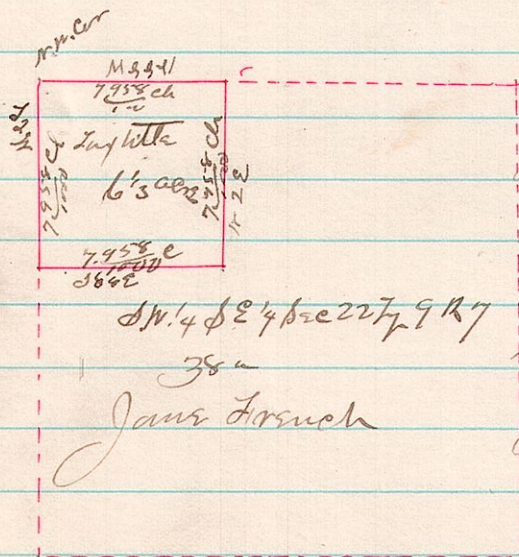 N.W. Cor
N88W
7 958 ch
S 2 W
7 958 Ch
1000
Tax title
6 1/3 acres
7 958 Ch
N 2 E
7.958 C
1000
S88E
S W. 1/4 S E 1/4 Sec 22 Tp 9 R 7
38 a
Jane French